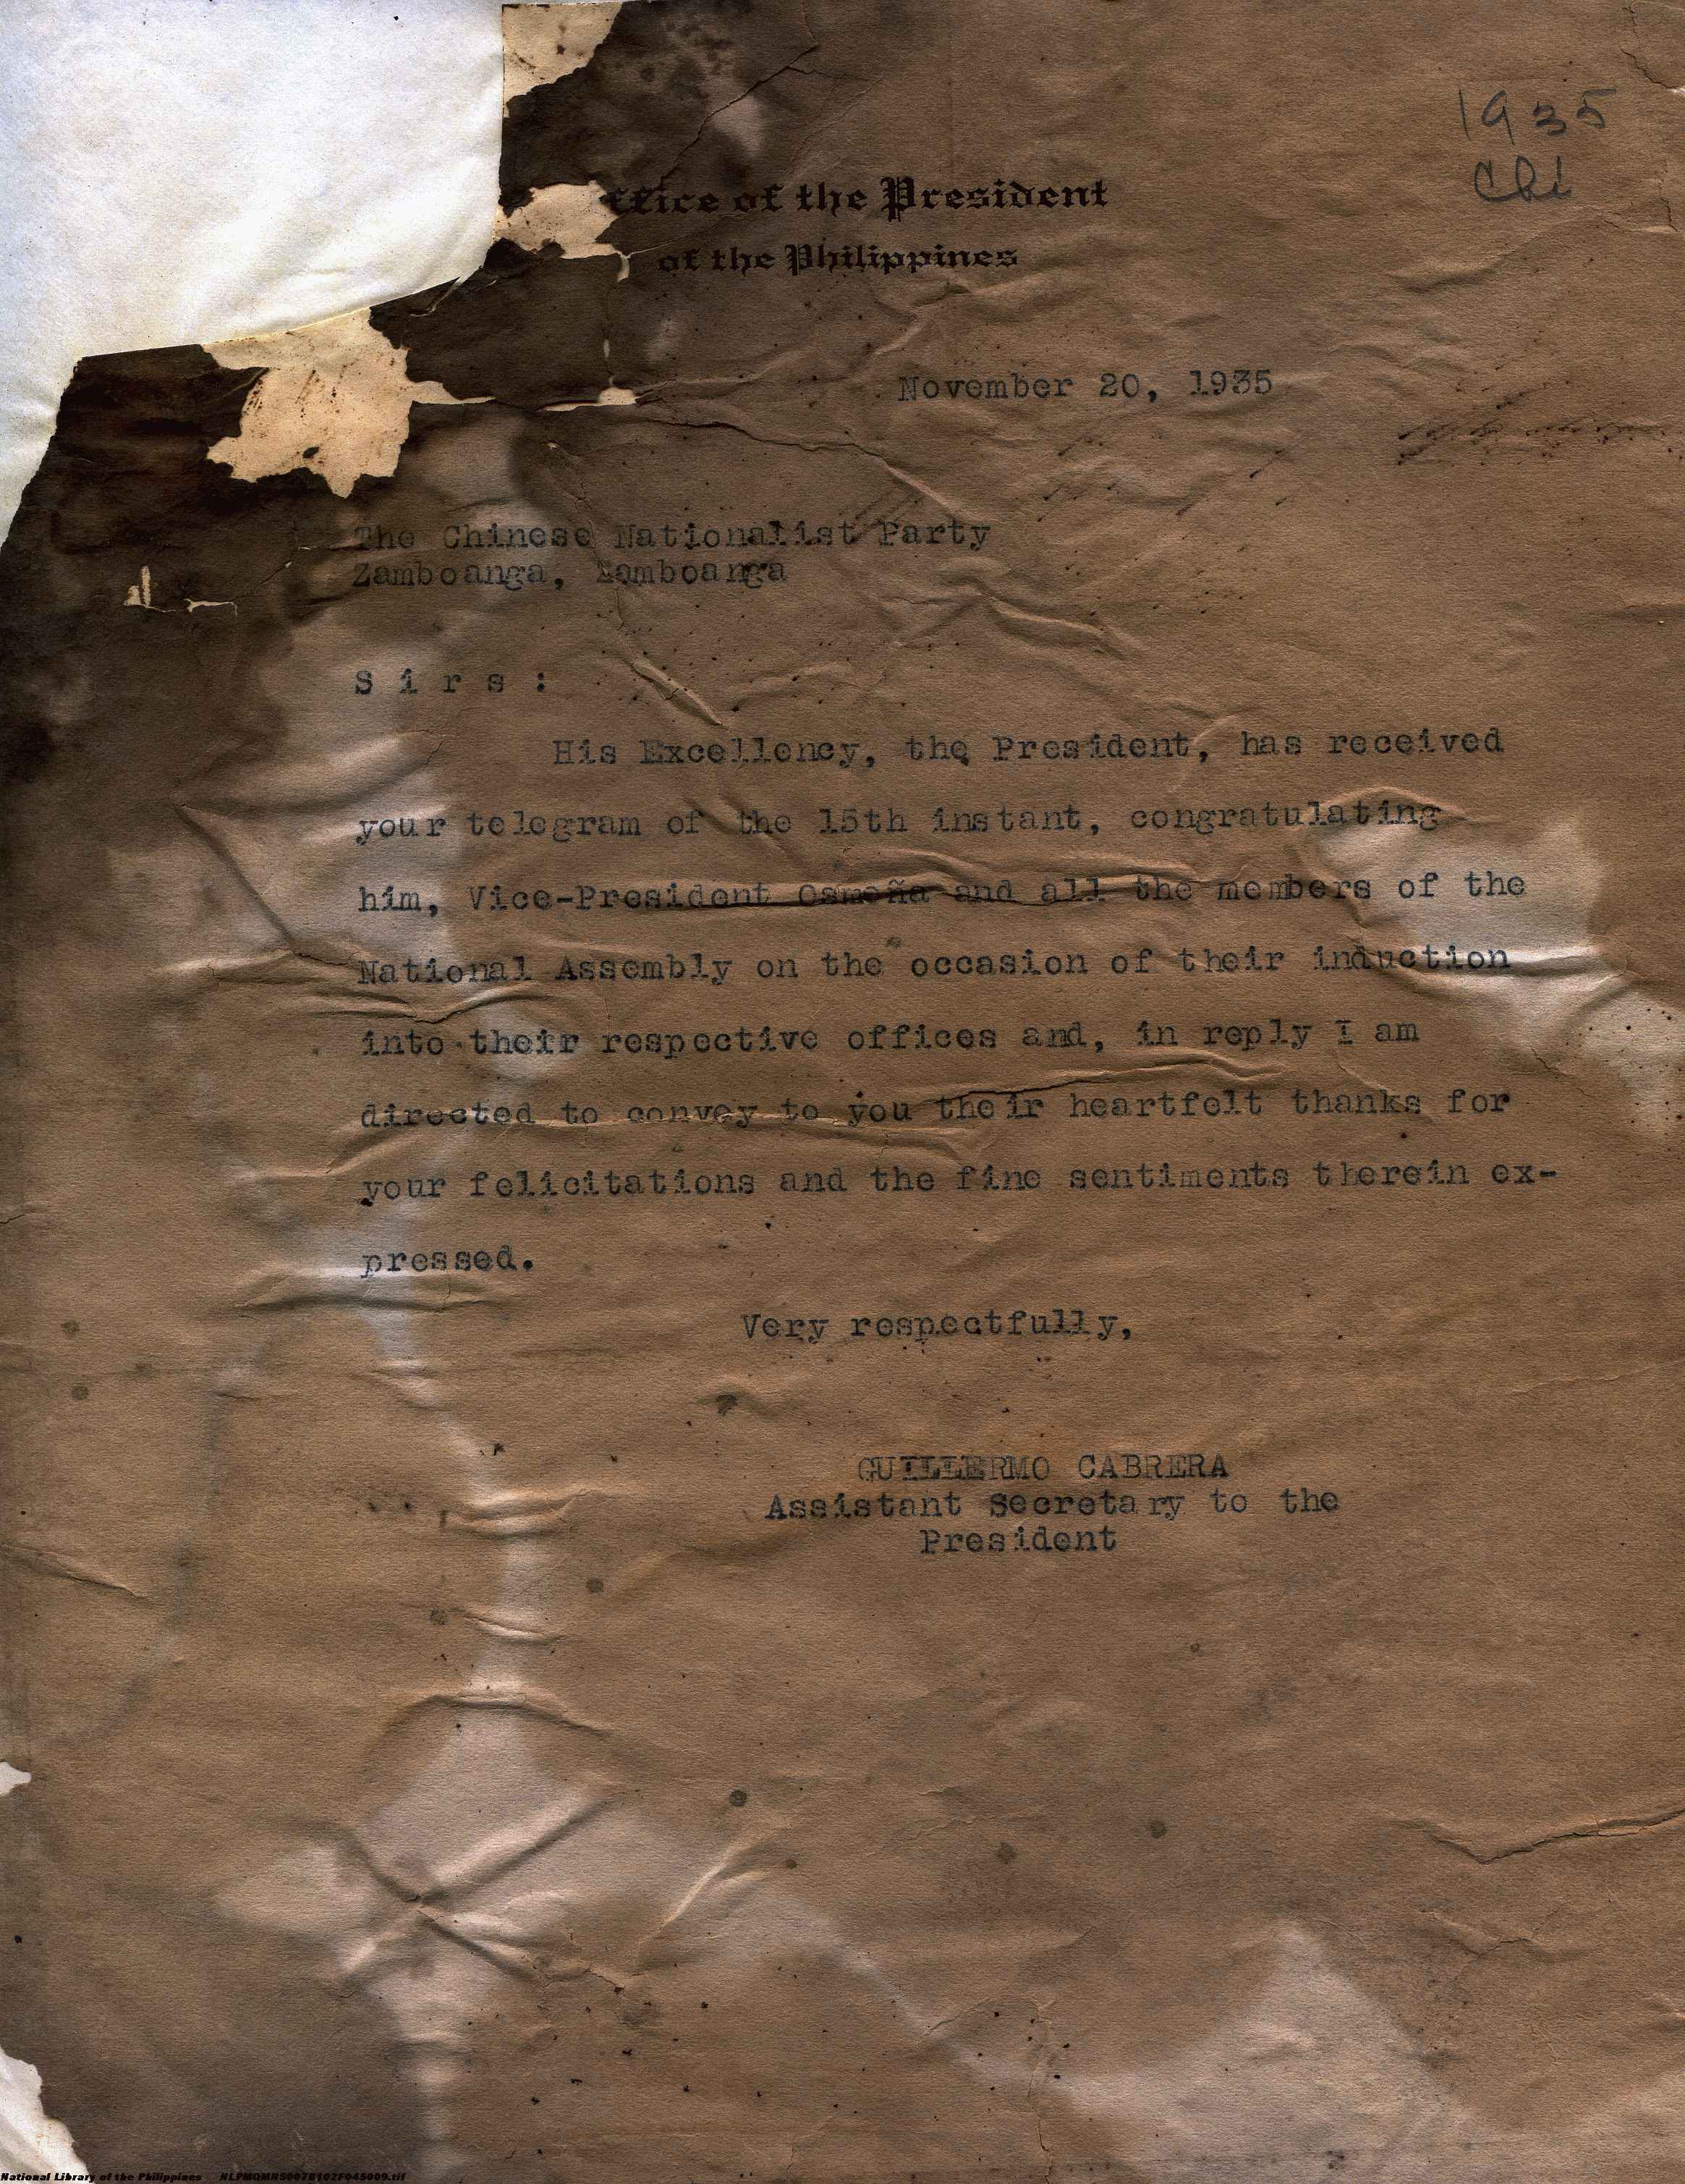 1935
Chi
ffice of the President
of the Philippines
November 20, 1935
The Chinese Nationalist Party
Zamboanga, Zamboanga
S i r s :
His Excellency, the President, has received
your telegram of the 15th instant, congratulating
him, Vice-President Osmeña and all the members of the
National Assembly on the occasion of their induction
into their respective offices and, in reply I am
directed to convey to you their heartfelt thanks for
your felicitations and the fine sentiments therein ex-
pressed.
Very respectfully,
GUILLERMO CABRERA
Assistant Secretary to the
President
National Library of the Philippines NLPMQMNS007B102F045009.tif